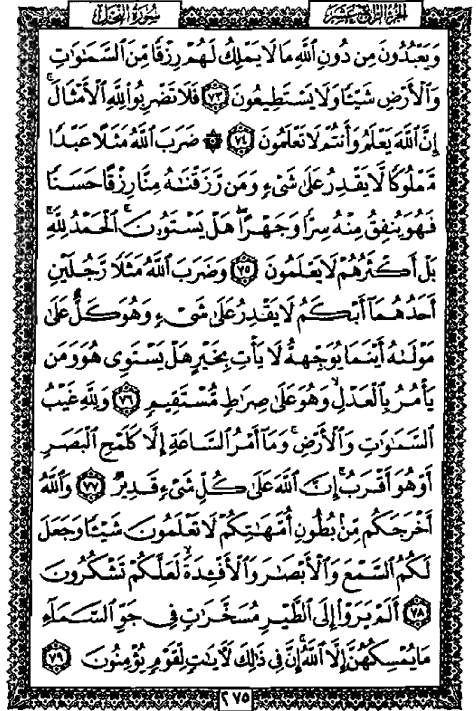 الجزء الرابع عشر سورة النحل
وَيَعْبُدُونَ مِن دُونِ ٱللَّهِ مَا لَا يَمْلِكُ لَهُمْ رِزْقًا مِّنَ ٱلسَّمَٰوَٰتِ
وَٱلْأَرْضِ شَيْـًٔا وَلَا يَسْتَطِيعُونَ ٧٣ فَلَا تَضْرِبُوا۟ لِلَّهِ ٱلْأَمْثَالَ ۚ
إِنَّ ٱللَّهَ يَعْلَمُ وَأَنتُمْ لَا تَعْلَمُونَ ٧٤ ۞ ضَرَبَ ٱللَّهُ مَثَلًا عَبْدًا
مَّمْلُوكًا لَّا يَقْدِرُ عَلَىٰ شَىْءٍ وَمَن رَّزَقْنَٰهُ مِنَّا رِزْقًا حَسَنًا
فَهُوَ يُنفِقُ مِنْهُ سِرًّا وَجَهْرًا ۖ هَلْ يَسْتَوُۥنَ ۚ ٱلْحَمْدُ لِلَّهِ ۚ
بَلْ أَكْثَرُهُمْ لَا يَعْلَمُونَ ٧٥ وَضَرَبَ ٱللَّهُ مَثَلًا رَّجُلَيْنِ
أَحَدُهُمَآ أَبْكَمُ لَا يَقْدِرُ عَلَىٰ شَىْءٍ وَهُوَ كَلٌّ عَلَىٰ
مَوْلَىٰهُ أَيْنَمَا يُوَجِّههُّ لَا يَأْتِ بِخَيْرٍ ۖ هَلْ يَسْتَوِى هُوَ وَمَن
يَأْمُرُ بِٱلْعَدْلِ ۙ وَهُوَ عَلَىٰ صِرَٰطٍ مُّسْتَقِيمٍ ٧٦ وَلِلَّهِ غَيْبُ
ٱلسَّمَٰوَٰتِ وَٱلْأَرْضِ ۚ وَمَآ أَمْرُ ٱلسَّاعَةِ إِلَّا كَلَمْحِ ٱلْبَصَرِ
أَوْ هُوَ أَقْرَبُ ۚ إِنَّ ٱللَّهَ عَلَىٰ كُلِّ شَىْءٍ قَدِيرٌ ٧٧ وَٱللَّهُ
أَخْرَجَكُم مِّنۢ بُطُونِ أُمَّهَٰتِكُمْ لَا تَعْلَمُونَ شَيْـًٔا وَجَعَلَ
لَكُمُ ٱلسَّمْعَ وَٱلْأَبْصَٰرَ وَٱلْأَفْـِٔدَةَ ۙ لَعَلَّكُمْ تَشْكُرُونَ
٧٨ أَلَمْ يَرَوْا۟ إِلَى ٱلطَّيْرِ مُسَخَّرَٰتٍ فِى جَوِّ ٱلسَّمَآءِ
مَا يُمْسِكُهُنَّ إِلَّا ٱللَّهُ ۗ إِنَّ فِى ذَٰلِكَ لَءَايَٰتٍ لِّقَوْمٍ يُؤْمِنُونَ ٧٩
٢٧٥